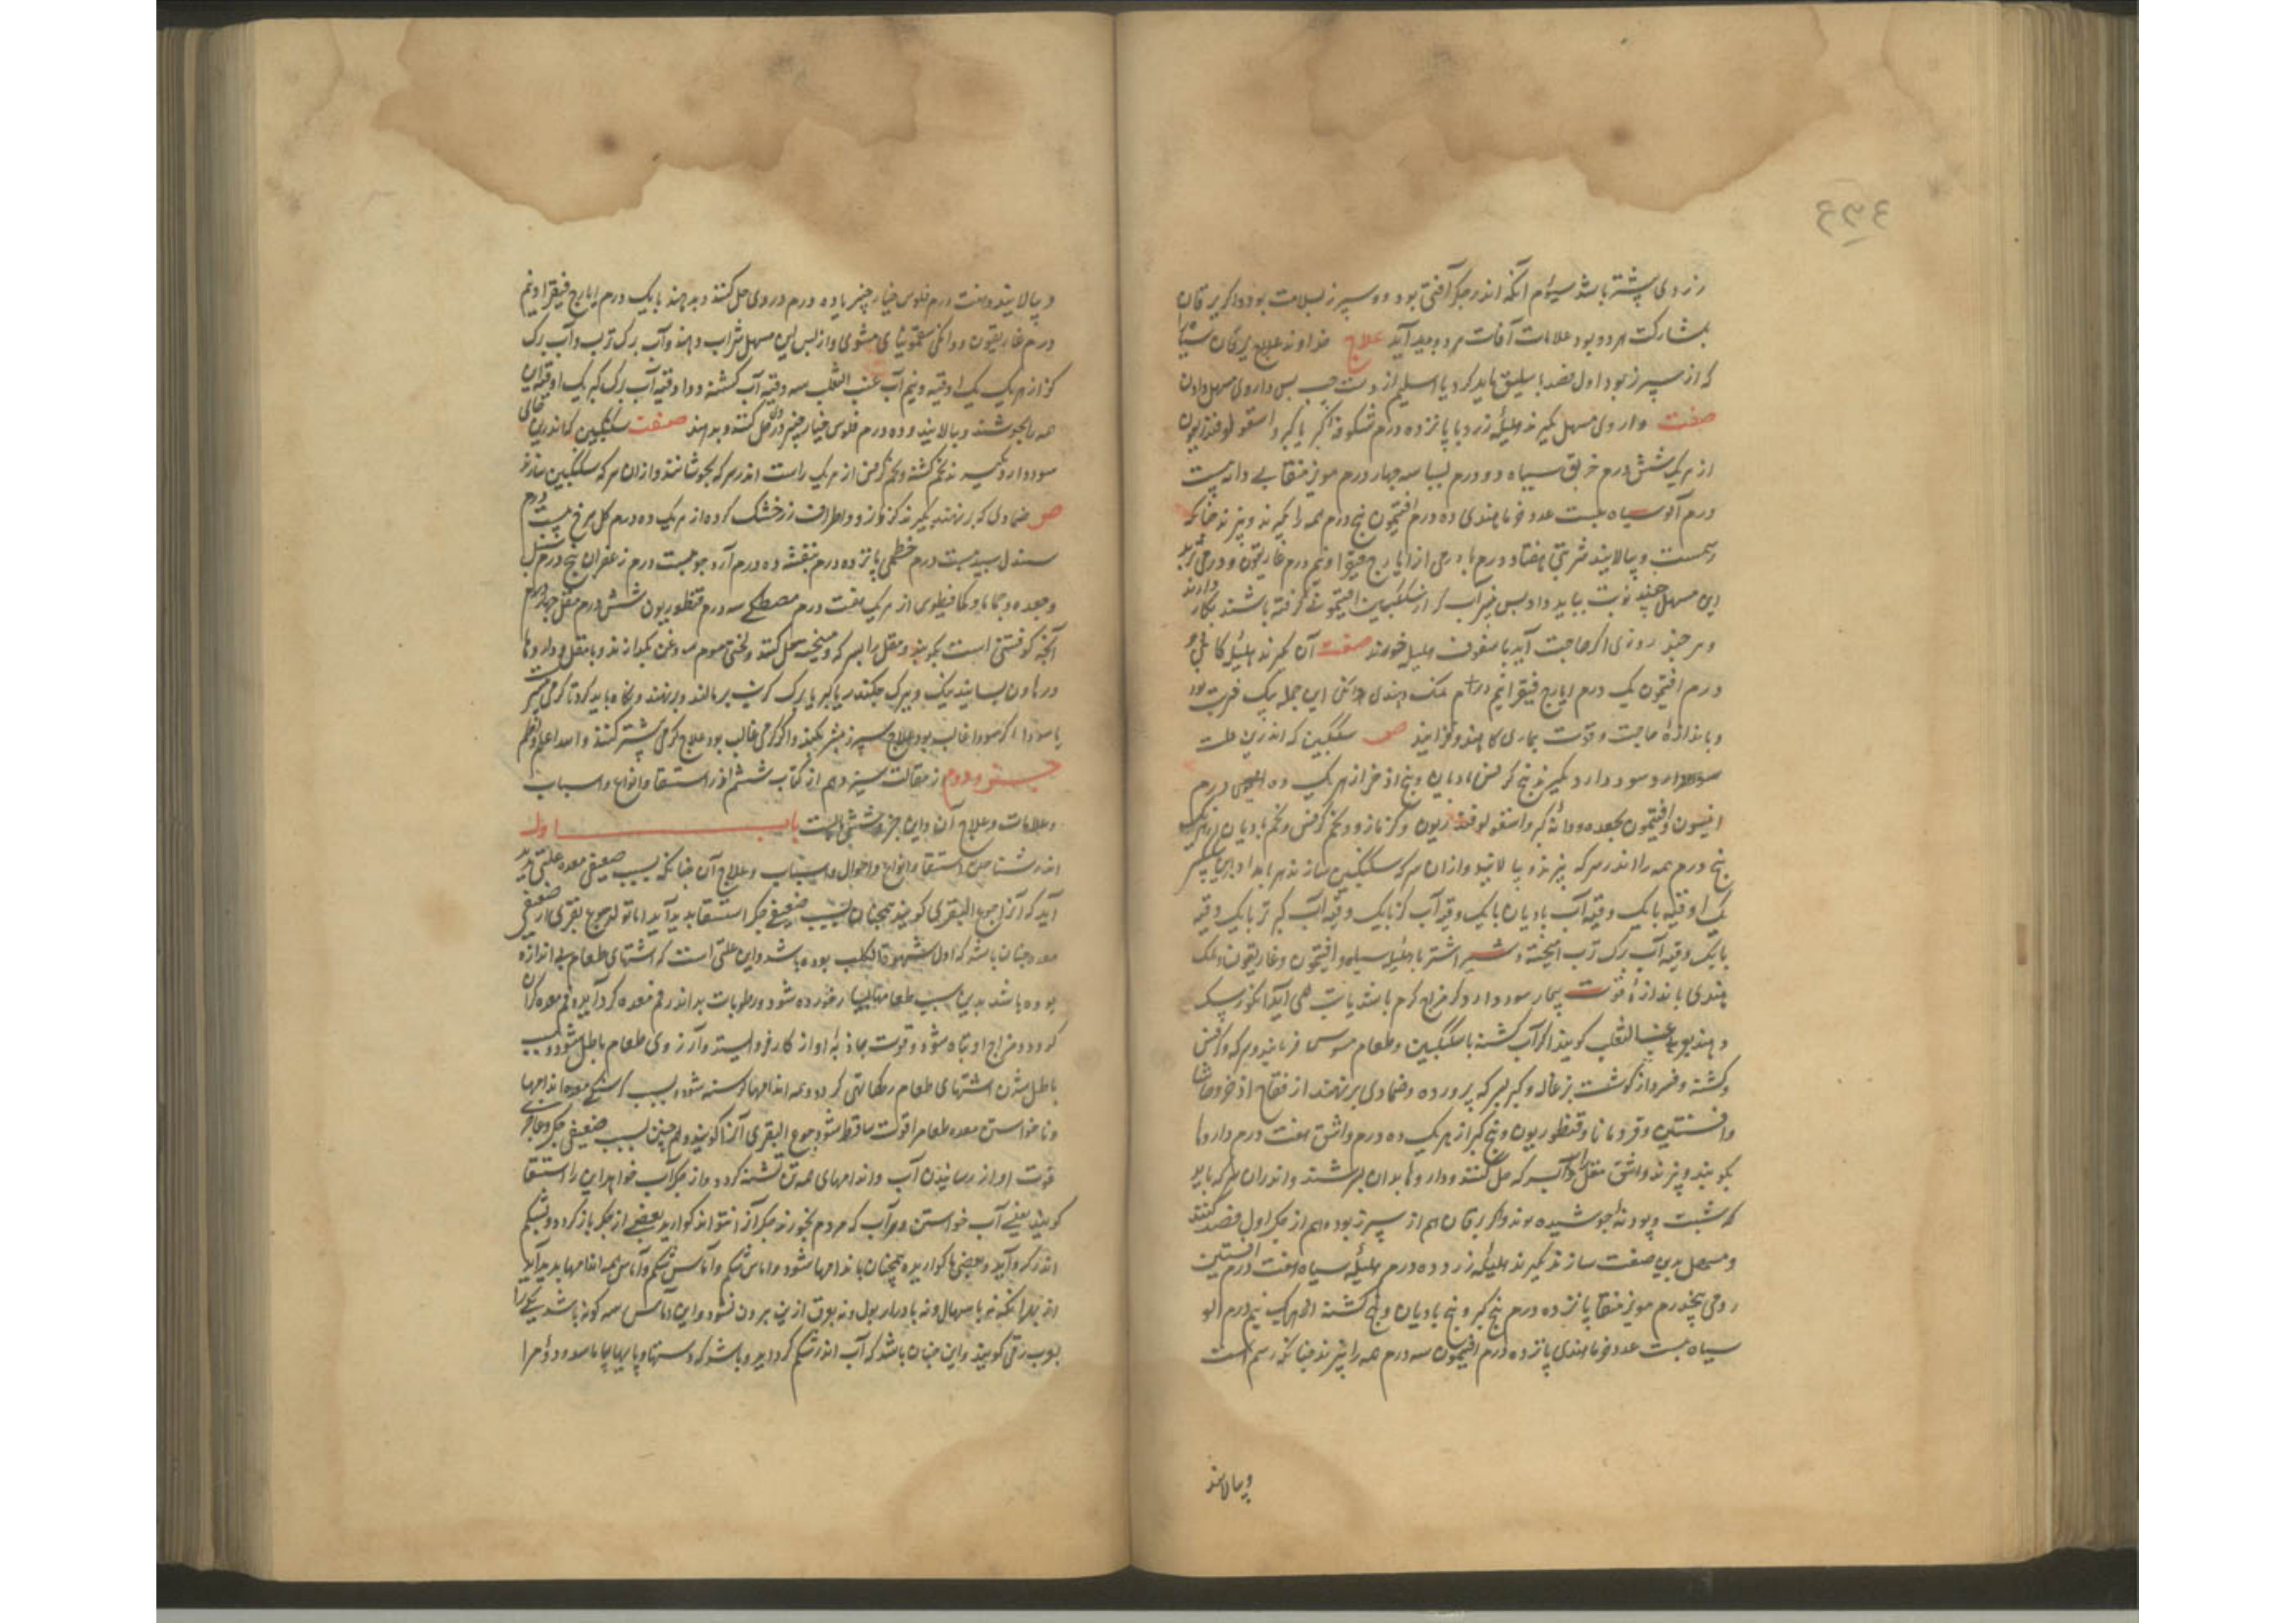 زردی پیشتر باشد سیوم آنکه اندر جگر آفتی بود و سپرز بسلامت بود و اگر یرقان
بمشارکت هر دو بود علامات آفات هر دو پدید آید علاج خداوند علاج یرقان سیاه
که از سپرز بود اول فصد باسلیق باید کرد یا اسیلم از دست چپ پس داروی مسهل دادن
صفت داروی مسهل بگیرند هلیله زرد پانزده درم شکوفه کبر یا کبر و اسقولوفندریون
از هر یک شش درم خربق سیاه دو درم بسباسه چهار درم مویز منقا بی دانه بیست
درم آلو سیاه بیست عدد خرما هندی ده درم افتیمون پنج درم همه را بگیرند و بپزند چنانکه
رسمست و بپالایند شربتی هفتاد درم با درمی از ایارج فیقرا و نیم درم غاریقون و درمی تربد
این مسهل چند نوبت بباید داد و پس پنیر آب که از سکنگبین افتیمونی گرفته باشند بکار دارند
و هر چند روزی اگر حاجت آید با سفوف هلیله خورند صفت آن بگیرند هلیله کابلی دو
درم افتیمون یک درم ایارج فیقرا نیم درم نمک هندی دانگی این جمله یک شربت بود
و باندازه حاجت و قوت بیماری کاهند و فزایند صو سکنگبین که اندرین علت
سود دارد بگیرند بیخ کرفس بادیان و بیخ اذخر از هر یک ده درم
انیسون و افتیمون جعده و دانه کبر و اسقولوفندریون و گزمازو و تخم کرفس و تخم بادیان از هر یک
پنج درم همه را اندر سرکه بپزند و بپالایند و از آن سرکه سکنگبین سازند هر بامداد
یک اوقیه با یک وقیه آب بادیان با یک وقیه آب گز با یک وقیه آب کبر تر با یک وقیه
با یک وقیه آب برگ ترب آمیخته و شیر اشتر با هلیله سیاه و افتیمون و غاریقون و نمک
هندی باندازه قوت بیمار سود دارد اگر مزاج گرم باشد یا تب همی آید انگور سگ
دهند عنب الثعلب گویند اگر آب کشنه با سکنگبین و طعام سوس فرمایند و سرکه و کرفس
و کشنه و فسرد از گوشت بزغاله و کبر بسرکه پرورده و ضمادی برنهند از فقاح اذخر و حاشا
و افسنتین و قردمانا و قنطوریون و بیخ کبر از هر یک ده درم و اشق هفت درم داروها
بکوبند و بپزند و اشق مقل را بسرکه حل کنند و داروها بدان بسرشند و اندران سرکه باید
که شبت و پودنه جوشیده بوند و اگر یرقان هم از سپرز بود و هم از جگر اول فصد کنند
و مسهل بدین صفت سازند بگیرند هلیله زرد ده درم هلیله سیاه هفت درم افسنتین
رومی پنجدرم مویز منقا پانزده درم بیخ کبر و بیخ بادیان و بیخ کشنه از هر یک نیم درم الو
سیاه بیست عدد خرما هندی پانزده درم افتیمون سه درم همه را بپزند چنانکه رسم است
و بپالایند
و بپالایند و هفت درم فلوس خیار چنبر با ده درم در وی حل کنند و بدهند با یک درم ایارج فیقرا و نیم
درم غاریقون و دانگی سقمونیای مشوی و از پس این مسهل شراب دهند و آب برگ ترب و آب برگ
گز از هر یک یک اوقیه و نیم آب عنب الثعلب سه وقیه آب کشنه دو اوقیه آب برگ کبر یک اوقیه این
همه را بجوشند و بپالایند و ده درم فلوس خیار چنبر در وی حل کنند و بدهند صفت سکنگبین که اندرین حال
سود دارد بگیرند تخم کشنه و تخم کرفس از هر یک راست اندر سرکه بجوشانند و از آن سرکه سکنگبین سازند
صو ضمادی که برنهند بگیرند گزمازو و اطراف رز خشک کرده از هر یک ده درم گل سرخ بیست درم
صندل سپید بیست درم خطمی پانزده درم بنفشه ده درم آرد جو بیست درم زعفران پنج درم سنبل
و جعده و حماما و کمافیطوس از هر یک هفت درم مصطکی سه درم قنطوریون شش درم مقل چهار درم
آنچه کوفتنی است بکوبند و مقل را بسرکه و میپخته حل کنند و لختی موم روغن بگدازند و با مقل و داروها
در هاون بسایند نیک و ببرگ چکندر یا کبر یا برگ کرنب برمالند و برنهند و نگاه باید کرد تا گرمی بیشتر است
یا سودا اگر سودا غالب بود علاج سپرز بیشتر بکنند و اگر گرمی غالب بود علاج گرمی بیشتر کنند و الله اعلم
جزو دوم از مقالت سیزدهم از کتاب ششم اندر استسقا و انواع و اسباب
و علامات و علاج آن و این جزو شش بابست باب اول
اندر شناختن استسقا و انواع و احوال و اسباب و علاج آن چنانکه بسبب ضعیفی معده علتی پدید
آید که آنرا جوع البقری گویند همچنان بسبب ضعیفی جگر استسقا پدید آید اما تولد جوع بقری از ضعیفی
معده چنان باشد که اول شهوة الکلب بوده باشد و این علتی است که اشتهای طعام بی اندازه
بوده باشد بدین سبب طعامها بسیار خورده شود و رطوبات بد اندر فم معده گرد آید و فم معده گران
گردد و مزاج او تباه شود و قوت جاذبه او از کار فرو ایستد و آرزوی طعام باطل شود و بسبب
باطل شدن اشتهای طعام رگها تهی گردد و همه اندامها گرسنه شود بسبب گرسنگی معده اندامها
و ناخواستن معده طعام را قوت ساقط شود جوع البقری آنرا گویند و همچنین بسبب ضعیفی جگر و عاجزی
قوت او از رسانیدن آب و اندامهای همه تن تشنه گردد و از جگر آب خواهد این را استسقا
گویند یعنی آب خواستن و هر آب که مردم بخورند جگر آنرا نتواند گوارید بعضی از جگر باز گردد و بشکم
اندر گرد آید و بعضی ناگواریده همچنان باندامها شود و آماس شکم و آماس همه اندامها پدید آید
از بهر آنکه نه باسهال و نه بادرار بول و نه بعرق ازین بیرون نشود و این آماس سه گونه باشد یکی را
زقی گویند و این چنان باشد که آب اندر شکم گرد آید و باشد که دستها و پایها بیاماسد و دوم را